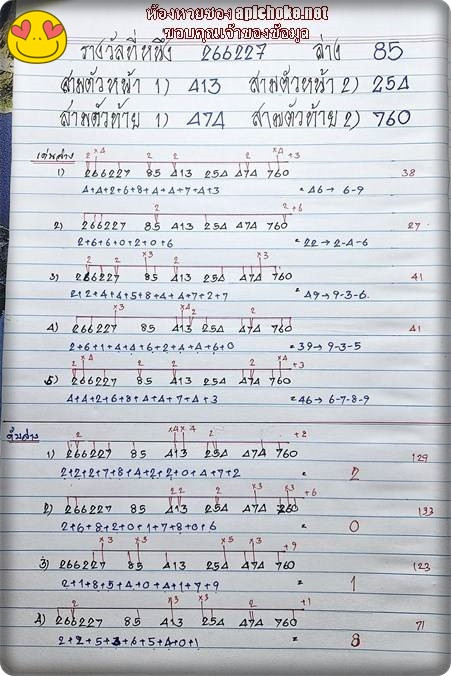 ห้องหวยซอง apichoke.net
ขอบคุณเจ้าของข้อมูล
รางวัลที่หนึ่ง 266227 ล่าง 85
สามตัวหน้า 1) 413 สามตัวหน้า 2) 254
สามตัวท้าย 1) 474 สามตัวท้าย 2) 760
เด่นล่าง 2 x4 2 2 2 x4 +3
1) 266227 85 413 254 474 760 38
4+4+2+6+8+4+4+7+4+3 = 46 → 6-9
2 2 +6
2) 266227 85 413 254 474 760 27
2+6+6+0+2+0+6 = 22 → 2-4-6
2 2 x3 2 x3
3) 266227 85 413 254 474 760 41
2+2+4+4+5+8+4+4+7+2+7 = 49 → 9-3-6
x3 x4 2 2
4) 266227 85 413 254 474 760 41
2+6+1+4+4+6+2+4+4+6+0 = 39 → 9-3-5
2 x4 2 2 x4 +3
5) 266227 85 413 254 474 760
4+4+2+6+8+4+4+7+4+3 = 46 → 6-7-8-9
2 x4 x3 2 +2
1) 266227 85 413 254 474 760 129
2+2+2+7+8+4+2+2+0+4+7+2 = 2
2 2 2 x3 x3 +6
2) 266227 85 413 254 474 760 133
2+6+8+2+0+1+7+8+0+6 = 0
x3 x3 x5 x4 +9
3) 266227 85 413 254 474 760 123
2+1+8+5+4+0+4+1+7+9 = 1
2 x3 x3 2 +1
4) 266227 85 413 254 474 760 71
2+2+5+3+6+5+4+0+1 = 8